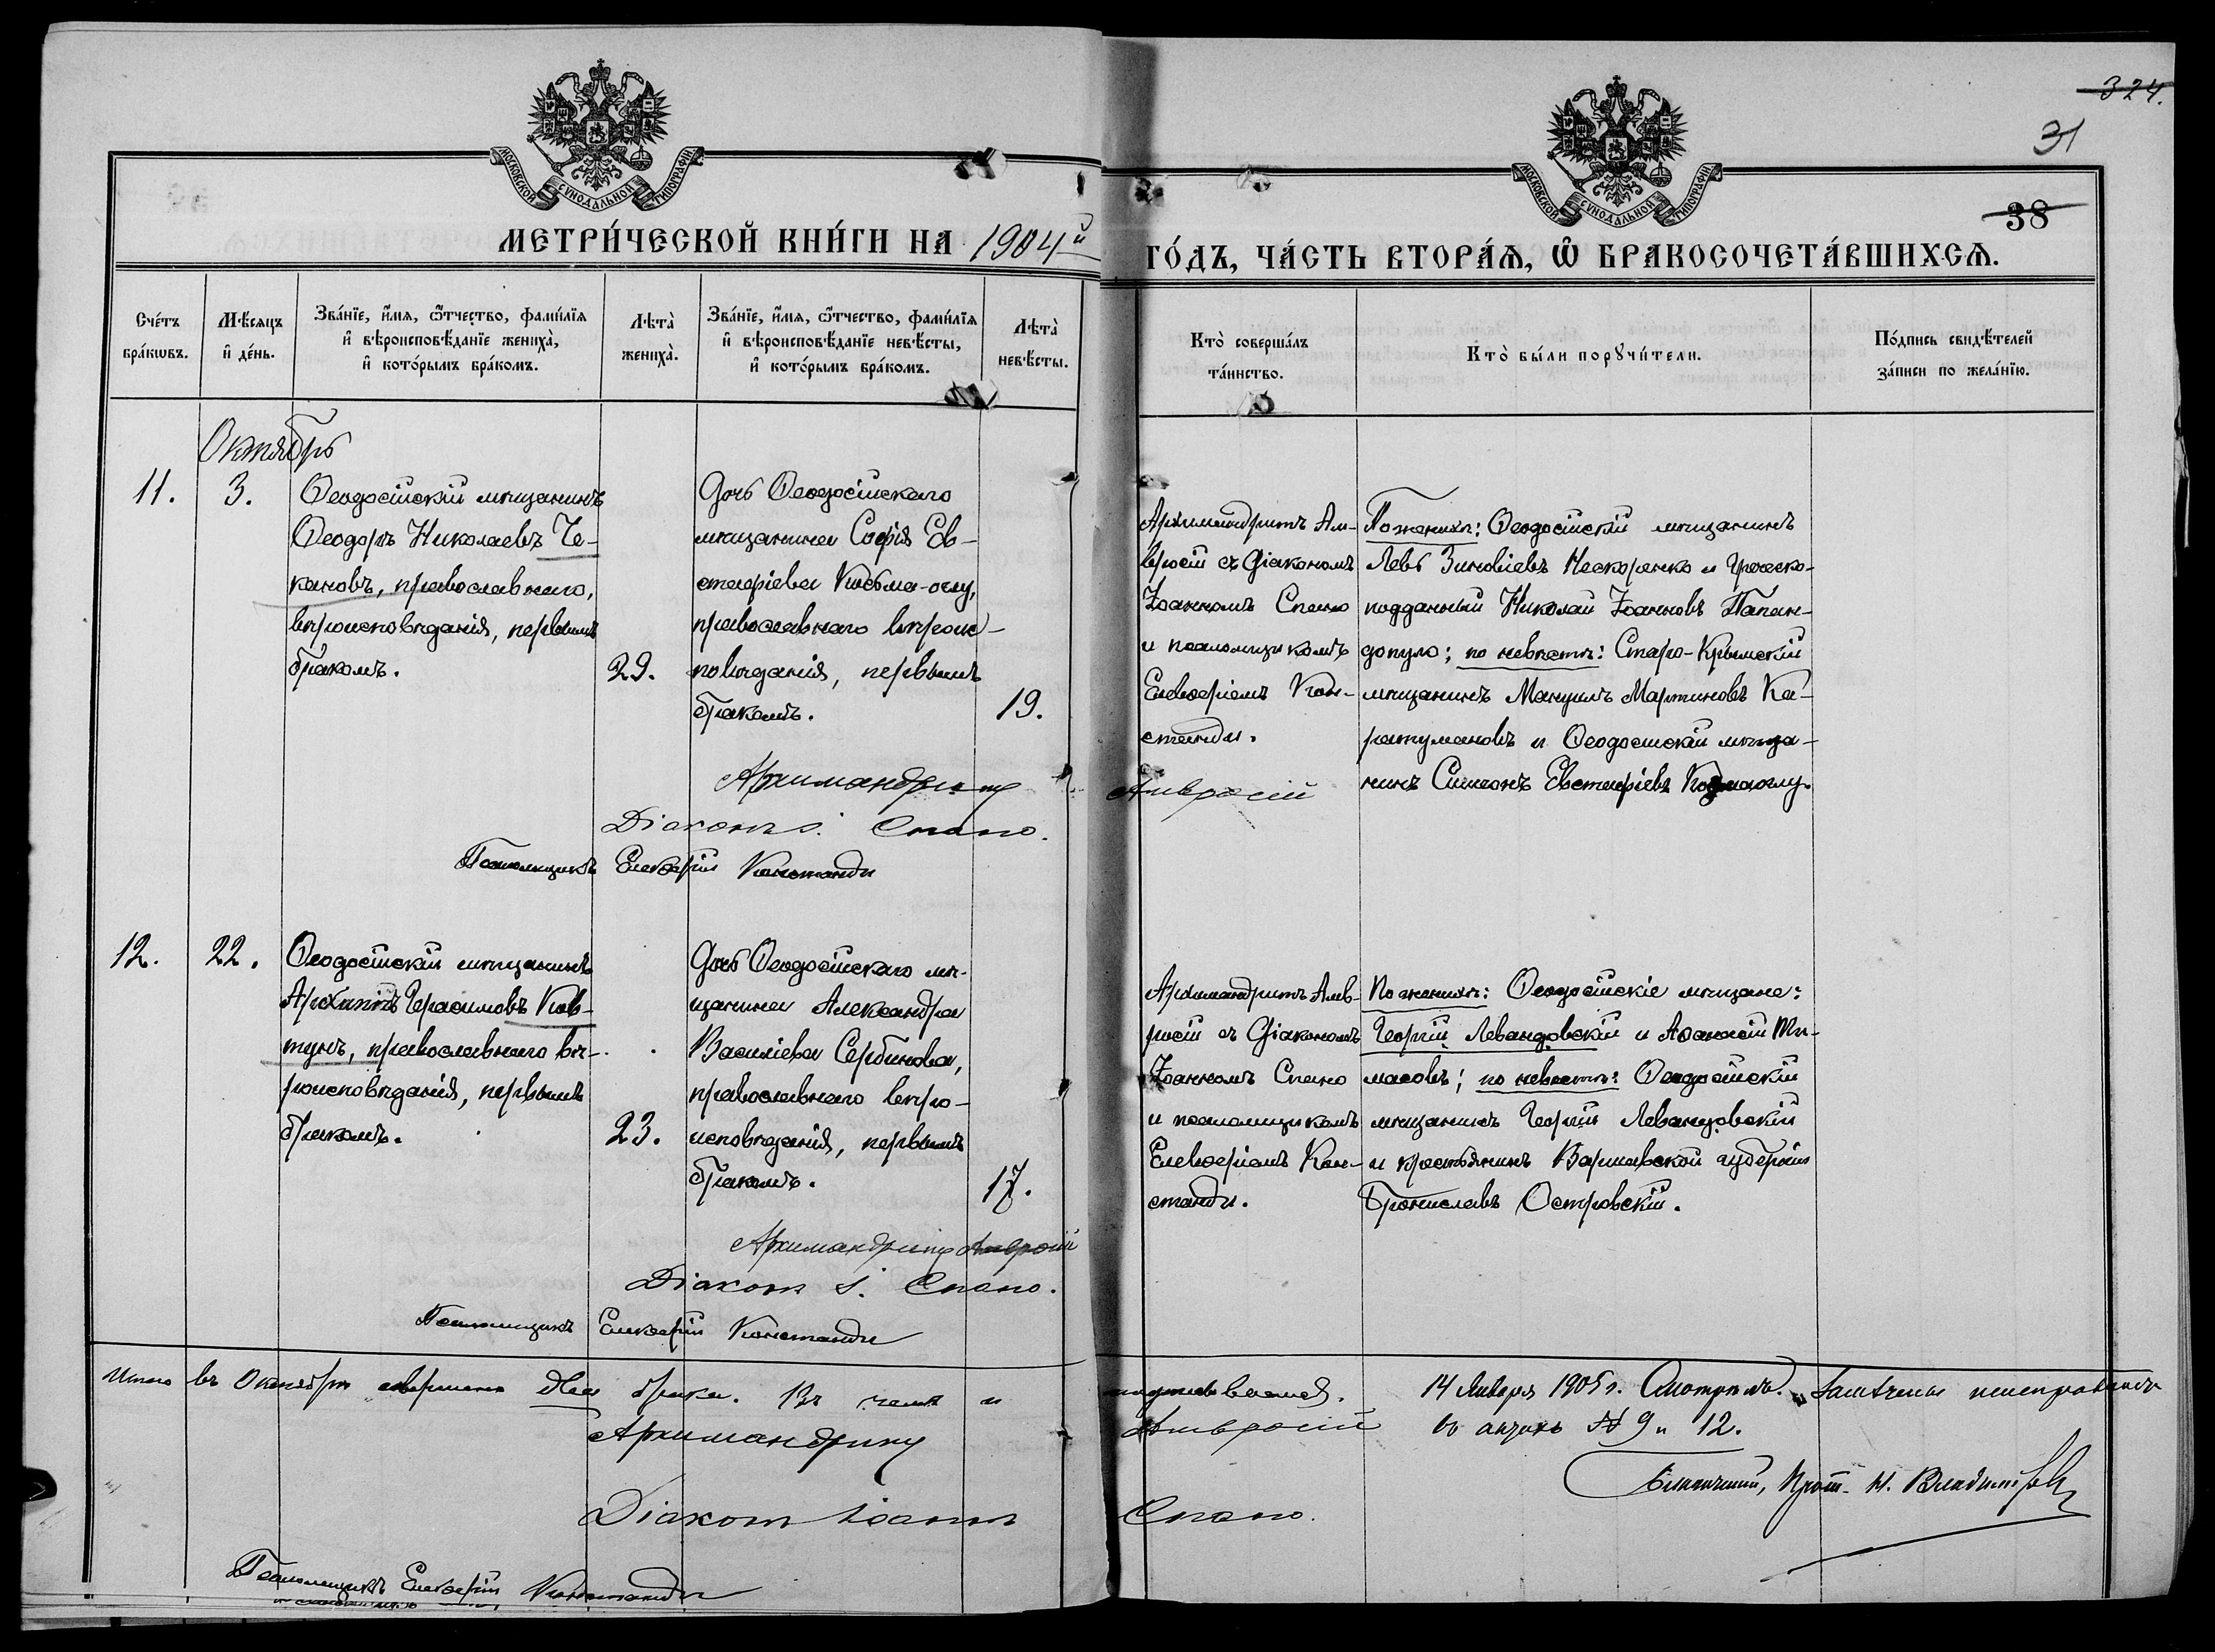 324.
31
38
МОСКОВСКОЙ СѴНОДАЛЬНОЙ ТИПОГРАФІИ
МОСКОВСКОЙ СѴНОДАЛЬНОЙ ТИПОГРАФІИ
МЕТРИ́ЧЕСКОЙ КНИ́ГИ НА 1904й
ГО́ДЪ, ЧА́СТЬ ВТОРА́Ѧ, Ѽ БРАКОСОЧЕТА́ВШИХСѦ.
Сче́тъ бра́кѡвъ.
Мѣ́сяцъ и҆ де́нь.
Зва́нїе, и҆́мя, ѻ҆́тчество, фами́лїя
и҆ вѣроисповѣ́данїе жениха̀,
и҆ кото́рымъ бра́комъ.
Лѣта̀ жениха̀.
Зва́нїе, и҆́мя, ѻ҆́тчество, фами́лїя
и҆ вѣроисповѣ́данїе невѣ́сты,
и҆ кото́рымъ бра́комъ.
Лѣта̀ невѣ́сты.
Кто̀ соверша́лъ
та́инство.
Кто̀ бы́ли порꙋчи́тели.
По́дпись свидѣ́телей
за́писи по жела́нїю.
Октябрь
11.
3.
Ѳеодосійскій мѣщанинъ
Ѳеодоръ Николаевъ Че-
кановъ, православнаго,
вѣроисповѣданія, первымъ
бракомъ.
29.
Дочь Ѳеодосійскаго
мѣщанина Софія Ев-
стафіева Косьма-оглу,
православнаго вѣроис-
повѣданія, первымъ
бракомъ.
19.
Архимандритъ Ам-
вросій съ Діакономъ
Іоанномъ Спано
и псаломщикомъ
Елевѳеріемъ Кон-
станди.
По женихѣ: Ѳеодосійскій мѣщанинъ
Левъ Зиновіевъ Нескоренко и Греческо-
подданный Николай Іоанновъ Папан-
допуло; по невѣстѣ: Старо-Крымскій
мѣщанинъ Мануилъ Мартиновъ Ка-
ратумановъ и Ѳеодосійскій мѣща-
нинъ Симеонъ Евстафіевъ Козмаоглу.
Архимандритъ Амвросій
Діаконъ І. Спано.
Псаломщикъ Елевѳерій Константи
12.
22.
Ѳеодосійскій мѣщанинъ
Архиппъ Герасимовъ Ков-
тунъ, православнаго вѣ-
роисповѣданія, первымъ
бракомъ.
23.
Дочь Ѳеодосійскаго мѣ-
щанина Александра
Василіева Сербинова,
православнаго вѣро-
исповѣданія, первымъ
бракомъ.
17.
Архимандритъ Амв-
росій съ Діакономъ
Іоанномъ Спано
и псаломщикомъ
Елевѳеріемъ Кон-
станди.
По женихѣ: Ѳеодосійскіе мѣщане:
Георгій Левандовскій и Аѳанасій Ти-
масовъ; по невѣстѣ: Ѳеодосійскій
мѣщанинъ Георгій Левандовскій
и крестьянинъ Варшавской губерніи
Брониславъ Островскій.
Архимандритъ Амвросій
Діаконъ І. Спано.
Псаломщикъ Елевѳерій Константи
Итого въ Октябрѣ совершено два брака. Въ чемъ и подписываемся.
Архимандритъ Амвросій
Діаконъ Іоаннъ Спано.
Псаломщикъ Елевѳерій Константи
14 Января 1905 г. Смотрѣлъ.
въ актахъ № 9 и 12.
Благочинный, Прот. Н. Владимірскій